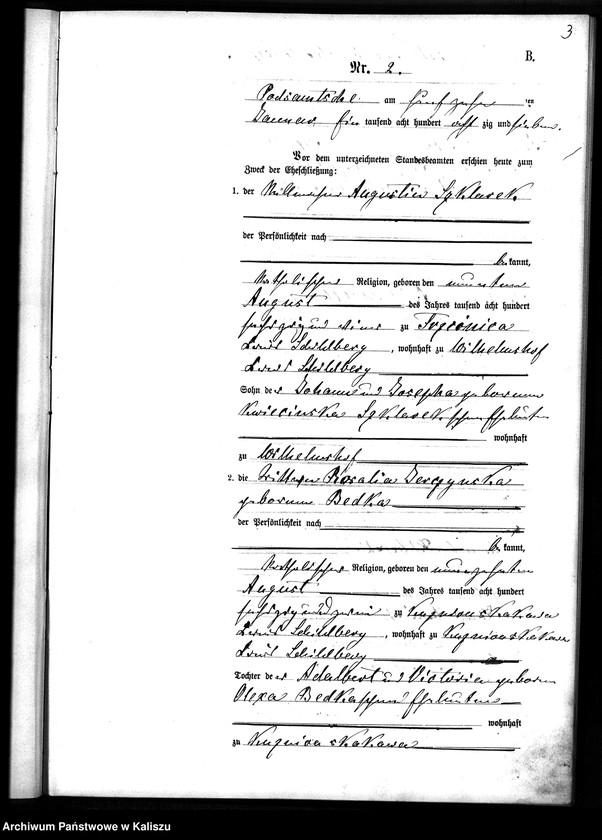 3
B.
Nr. 2.
Podsamtsche am fünfzehn ten
Januar Ein tausend acht hundert acht zig und sieben.
Vor dem unterzeichneten Standesbeamten erschien heute zum
Zweck der Eheschließung:
1. der Augustin Szklarek
der Persönlichkeit nach
be kannt,
katholischer Religion, geboren den neunten
August des Jahres tausend acht hundert
sechszig und eins zu
Kreis Schildberg, wohnhaft zu Wilhelmshof
Kreis Schildberg
Sohn der Johann und Josepha geborenen
Kwiecinska Szklarek schen Eheleute
wohnhaft
zu Wilhelmshof
2. die Rosalia
geborene Bedka
der Persönlichkeit nach
be kannt,
katholischer Religion, geboren den neunzehnten
August des Jahres tausend acht hundert
sechszig und zwei zu
Kreis Schildberg, wohnhaft zu
Kreis Schildberg
Tochter der Adalbert und Victoria geborenen
Olexa Bedka schen Eheleute
wohnhaft
zu
Archiwum Państwowe w Kaliszu